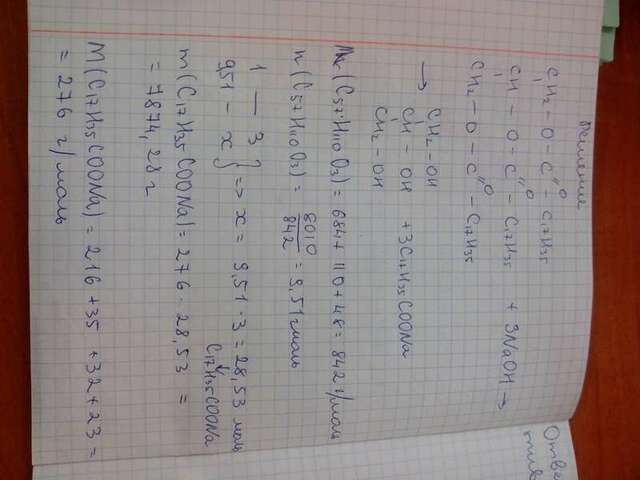 Решение
CH₂ – O – C – C₁₇H₃₅
O
CH – O – C – C₁₇H₃₅ + 3NaOH →
O
CH₂ – O – C – C₁₇H₃₅
O
→ CH₂ – OH
CH – OH + 3C₁₇H₃₅COONa
CH₂ – OH
Mr(C₅₇H₁₁₀O₃) = 684 + 110 + 48 = 842 г/моль
n(C₅₇H₁₁₀O₃) = 8010/842 = 9,51 гмоль
1 — 3
9,51 – x } => x = 9,51 · 3 = 28,53 моль
C₁₇H₃₅COONa
m(C₁₇H₃₅COONa) = 276 · 28,53 =
= 7874,28 г
M(C₁₇H₃₅COONa) = 216 + 35 + 32 + 23 =
= 276 г/моль
Отве